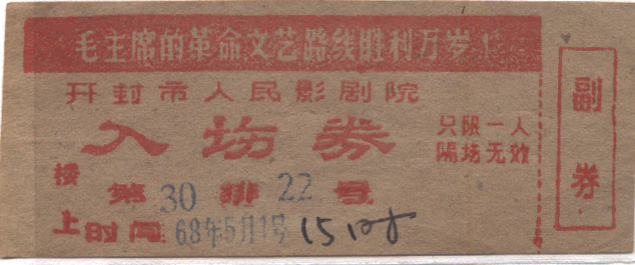 毛主席的革命文艺路线胜利万岁!
开封市人民影剧院
入场券
只限一人
隔场无效
楼上
第30排22号
时间 68年5月1号 15时
副券